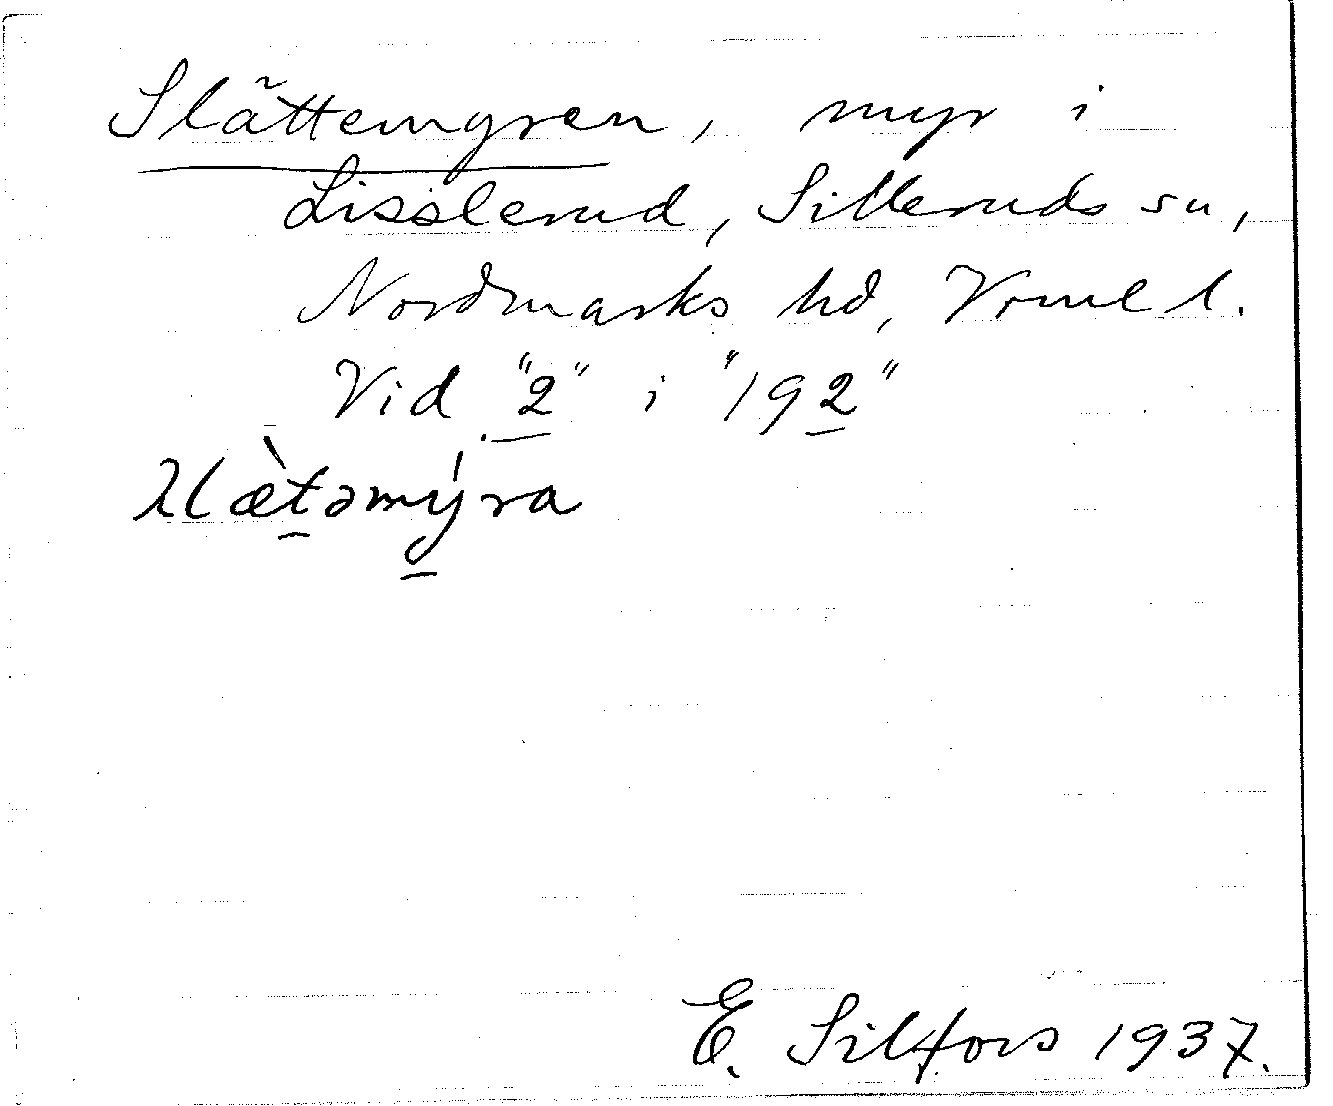 Slättemyren, myr i
Lisslerud, Silleruds sn,
Nordmarks hd, Vrml l.
Vid "2" i "192"
slæ̀təmýra
E. Silfors 1937.